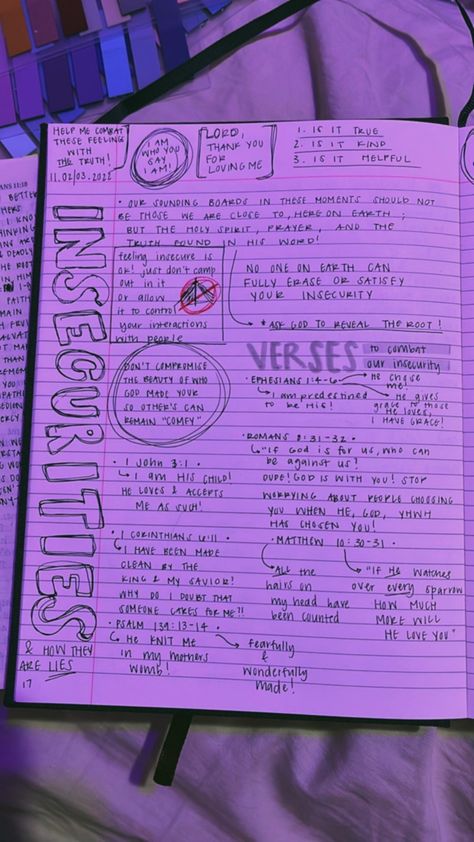 HELP ME COMBAT
THESE FEELINGS
WITH
THE TRUTH!
11.02/03.2022
I AM
WHO YOU
SAY
I AM!
LORD,
THANK YOU
FOR
LOVING ME
1. IS IT TRUE
2. IS IT KIND
3. IS IT HELPFUL
INSECURITIES
& HOW THEY
ARE LIES
17
• OUR SOUNDING BOARDS IN THESE MOMENTS SHOULD NOT
BE THOSE WE ARE CLOSE TO, HERE ON EARTH;
BUT THE HOLY SPIRIT, PRAYER, AND THE
TRUTH FOUND IN HIS WORD!
feeling insecure is
ok! just don't camp
out in it
or allow
it to control
your interactions
with people
NO ONE ON EARTH CAN
FULLY ERASE OR SATISFY
YOUR INSECURITY
* ASK GOD TO REVEAL THE ROOT!
DON'T COMPROMISE
THE BEAUTY OF WHO
GOD MADE YOU
SO OTHER'S CAN
REMAIN "COMFY"
VERSES to combat
our insecurity
• EPHESIANS 1:4-6 → He chose
me!
I am predestined
to be His!
He gives
grace to those
He loves,
I HAVE GRACE!
• ROMANS 8:31-32 •
"If God is for us, who can
be against us!
DUDE! GOD IS WITH YOU! STOP
WORRYING ABOUT PEOPLE CHOOSING
YOU WHEN HE, GOD, YHWH
HAS CHOSEN YOU!
• 1 John 3:1 •
I AM HIS CHILD!
HE LOVES & ACCEPTS
ME AS SUCH!
• 1 CORINTHIANS 6:11 •
I HAVE BEEN MADE
CLEAN BY THE
KING & MY SAVIOR!
WHY DO I DOUBT THAT
SOMEONE CARES FOR ME!!
• MATTHEW 10:30-31 •
ALL the
hairs on
my head have
been counted
"IF HE WATCHES
over every sparrow
HOW MUCH
MORE WILL
HE LOVE YOU"
• PSALM 139:13-14 •
HE KNIT ME
in my mothers
womb!
fearfully
&
wonderfully
made!